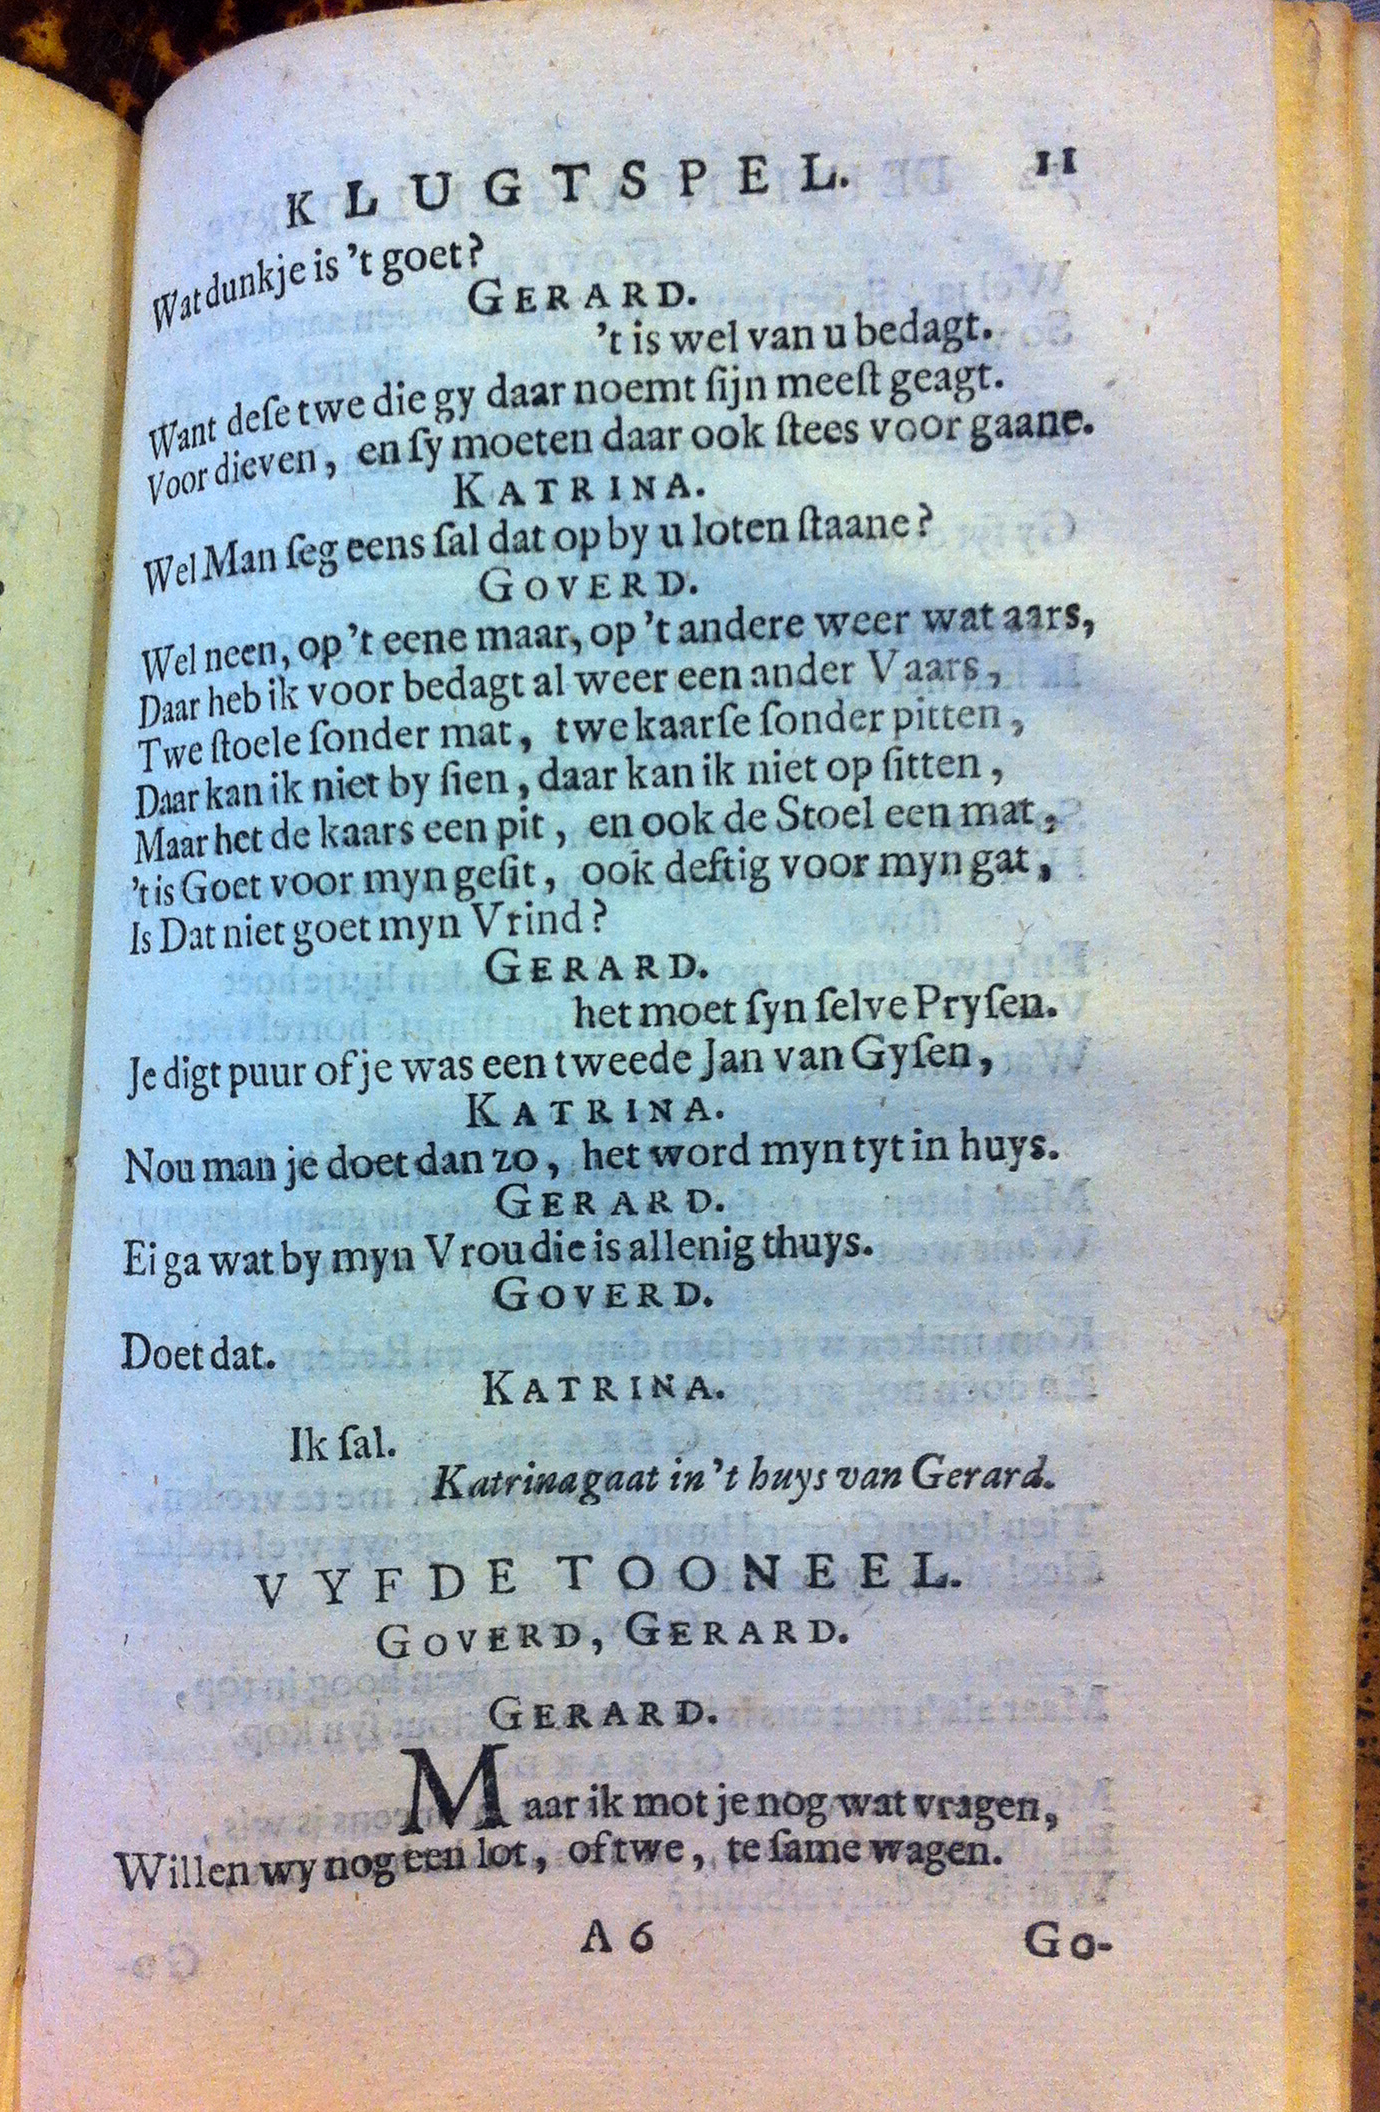 KLUGTSPEL. 11
Wat dunkje is 't goet?
GERARD.
't is wel van u bedagt.
Want deſe twe die gy daar noemt ſijn meeſt geagt.
Voor dieven, en ſy moeten daar ook ſtees voor gaane.
KATRINA.
Wel Man ſeg eens ſal dat op by u loten ſtaane?
GOVERD.
Wel neen, op 't eene maar, op 't andere weer wat aars,
Daar heb ik voor bedagt al weer een ander Vaars,
Twe ſtoele ſonder mat, twe kaarſe ſonder pitten,
Daar kan ik niet by ſien, daar kan ik niet op ſitten,
Maar het de kaars een pit, en ook de Stoel een mat,
't is Goet voor myn geſit, ook deftig voor myn gat,
Is Dat niet goet myn Vrind?
GERARD.
het moet ſyn ſelve Pryſen.
Je digt puur of je was een tweede Jan van Gyſen,
KATRINA.
Nou man je doet dan zo, het word myn tyt in huys.
GERARD.
Ei ga wat by myn Vrou die is allenig thuys.
GOVERD.
Doet dat.
KATRINA.
Ik ſal.
Katrina gaat in 't huys van Gerard.
VYFDE TOONEEL.
GOVERD, GERARD.
GERARD.
Maar ik mot je nog wat vragen,
Willen wy nog een lot, of twe, te ſame wagen.
A 6 Go-